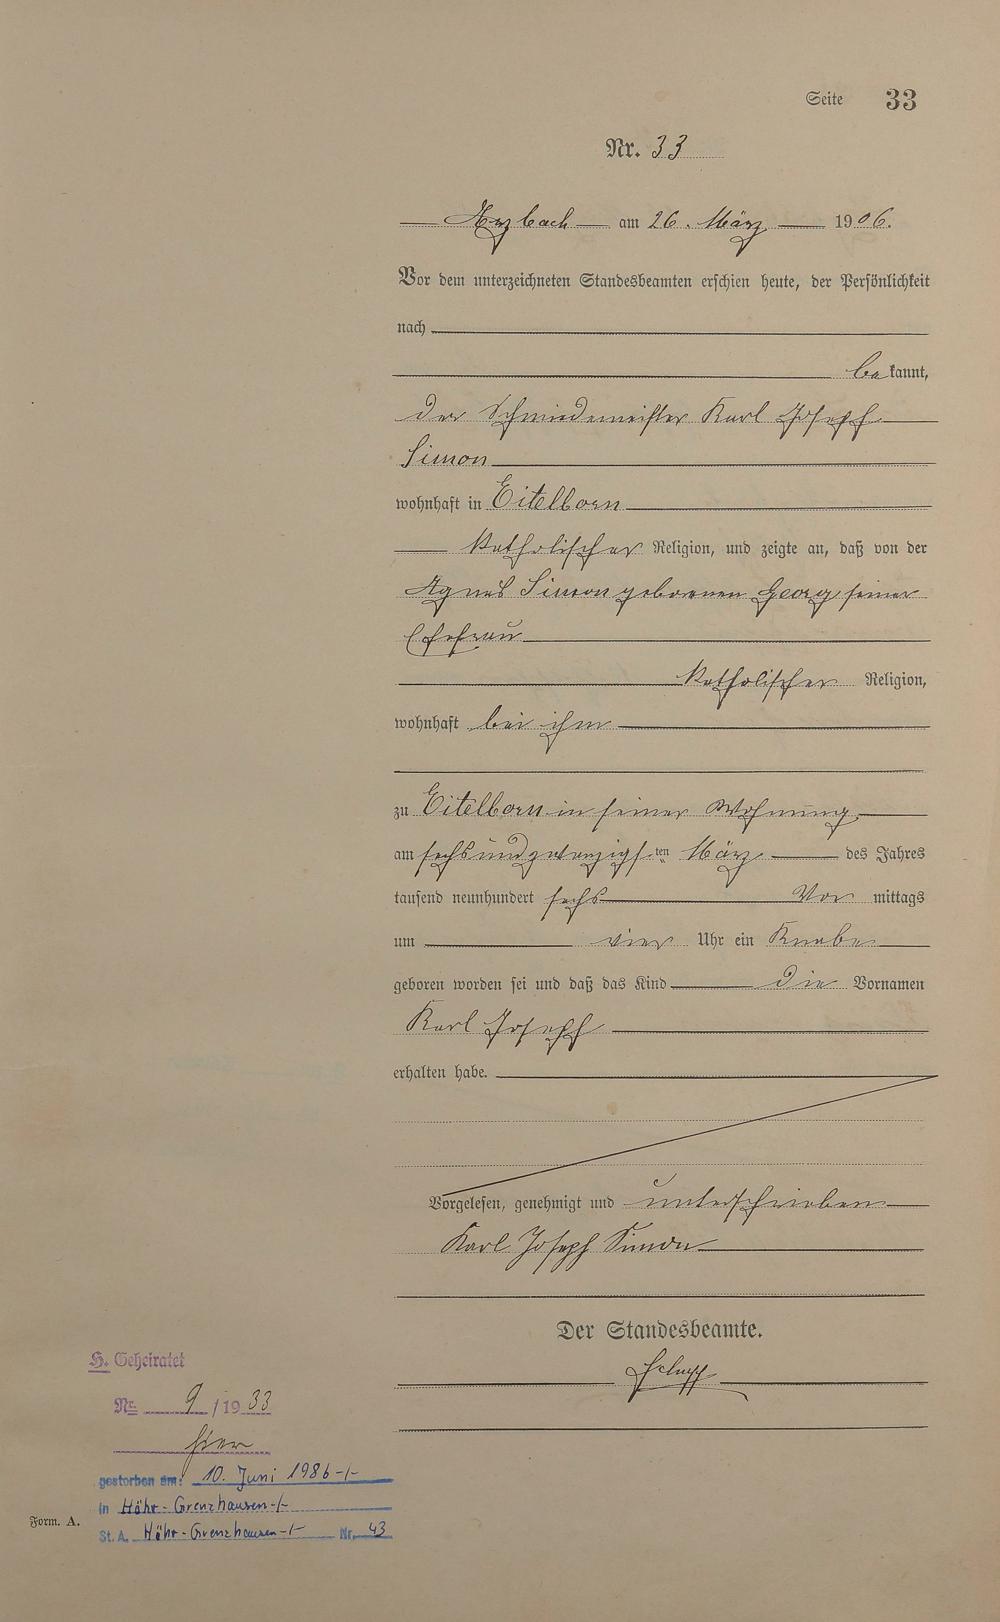 Seite 33
Nr. 33
Arzbach am 26. März 1906.
Vor dem unterzeichneten Standesbeamten erschien heute, der Persönlichkeit
nach
bekannt,
der Schmiedemeister Karl Joseph
Simon
wohnhaft in Eitelborn
katholischer Religion, und zeigte an, daß von der
Agnes Simon geborenen Georg seiner
Ehefrau
katholischer Religion,
wohnhaft bei ihm
zu Eitelborn in seiner Wohnung
am sechsundzwanzigsten März des Jahres
tausend neunhundert sechs Vor mittags
um vier Uhr ein Knabe
geboren worden sei und daß das Kind die Vornamen
Karl Joseph
erhalten habe.
Vorgelesen, genehmigt und unterschrieben
Karl Joseph Simon
Der Standesbeamte.
H. Geheiratet
Nr. 9/1933
hier
gestorben am: 10. Juni 1986 -/-
in Höhr-Grenzhausen -/-
St. A. Höhr-Grenzhausen -/- Nr. 43
Form. A.